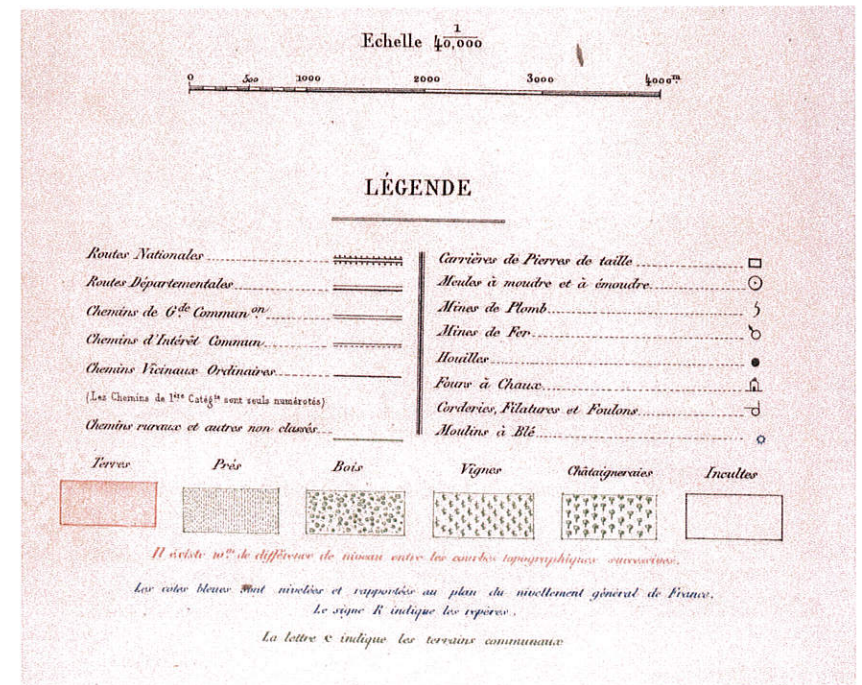 Echelle 1/40,000
0 500 1000 2000 3000 4000m.
LÉGENDE
Routes Nationales
Routes Départementales
Chemins de Gde Communon.
Chemins d'Intérêt Commun
Chemins Vicinaux Ordinaires
(Les Chemins de 1ère Catégie sont seuls numérotés)
Chemins ruraux et autres non classés
Carrières de Pierres de taille
Meules à moudre et à émoudre
Mines de Plomb
Mines de Fer
Houilles
Fours à Chaux
Corderies, Filatures et Foulons
Moulins à Blé
Terres Prés Bois Vignes Châtaigneraies Incultes
Il existe 10m. de différence de niveau entre les courbes topographiques successives.
Les cotes bleues sont nivelées et rapportées au plan du nivellement général de France.
Le signe R indique les repères.
La lettre c indique les terrains communaux